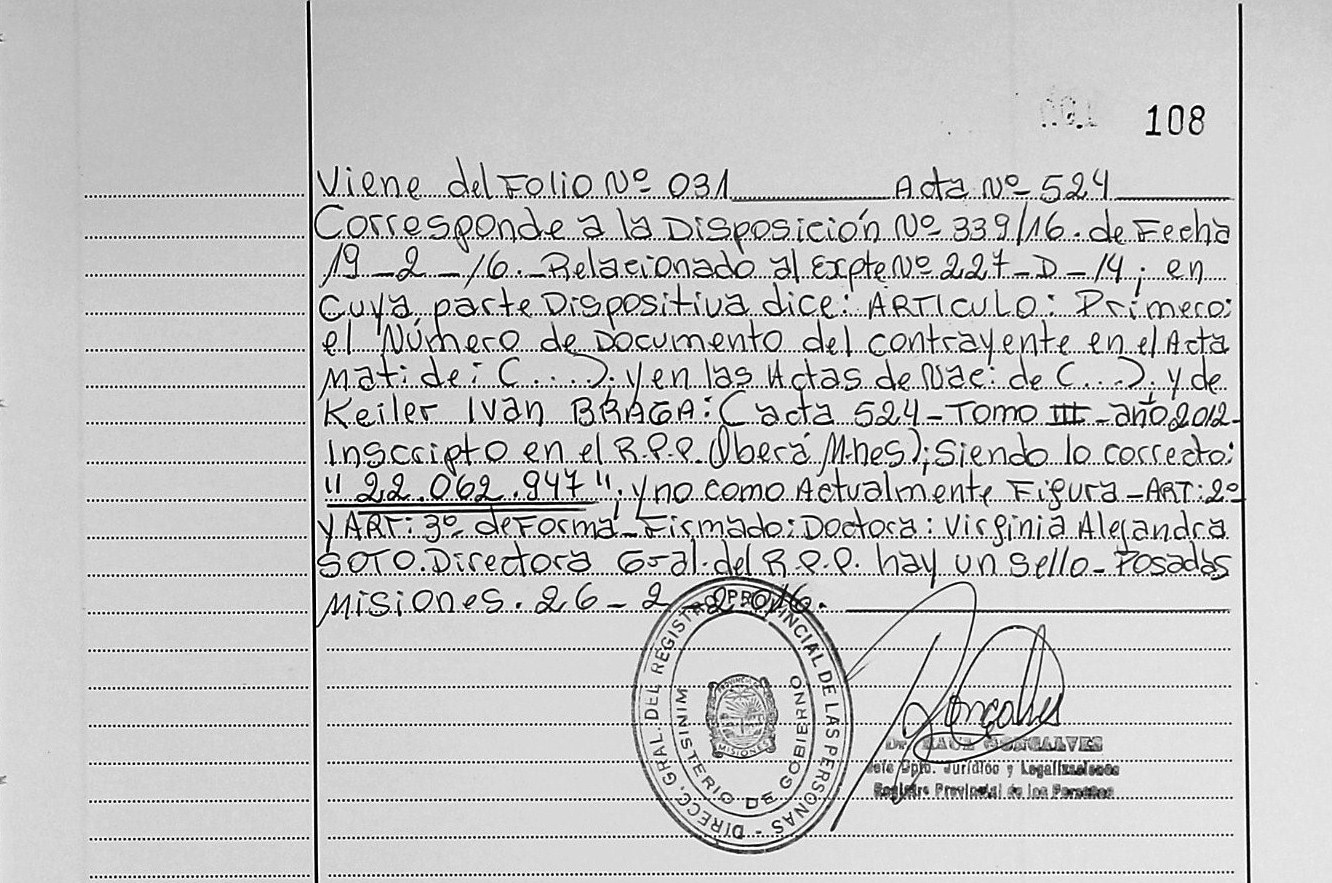 108
Viene del Folio Nº 031 Acta Nº 524
Corresponde a la Disposición Nº 339/16. de Fecha
19-2-16.- Relacionado al Expte Nº 227-D-14; en
Cuya parte Dispositiva dice: ARTICULO: Primero:
el Número de Documento del contrayente en el Acta
Mat: de: (....); y en las Actas de Nac: de (....); y de
Keiler Ivan BRAGA: (acta 524-Tomo III-año 2012-
Inscripto en el R.P.P. (Oberá Mnes); Siendo lo correcto:
"22.062.947"; y no como Actualmente Figura-ART: 2º
y ART: 3º de Forma-Firmado: Doctora: Virginia Alejandra
SOTO. Directora Gral. del R.P.P. hay un sello- Posadas
Misiones. 26-2-2016.
DIRECC. GRAL. DEL REGISTRO PROVINCIAL DE LAS PERSONAS -
MINISTERIO DE GOBIERNO
MISIONES
Gonçalves
Dr. RAUL GONCALVES
Jefe Dpto. Jurídico y Legalizaciones
Registro Provincial de las Personas